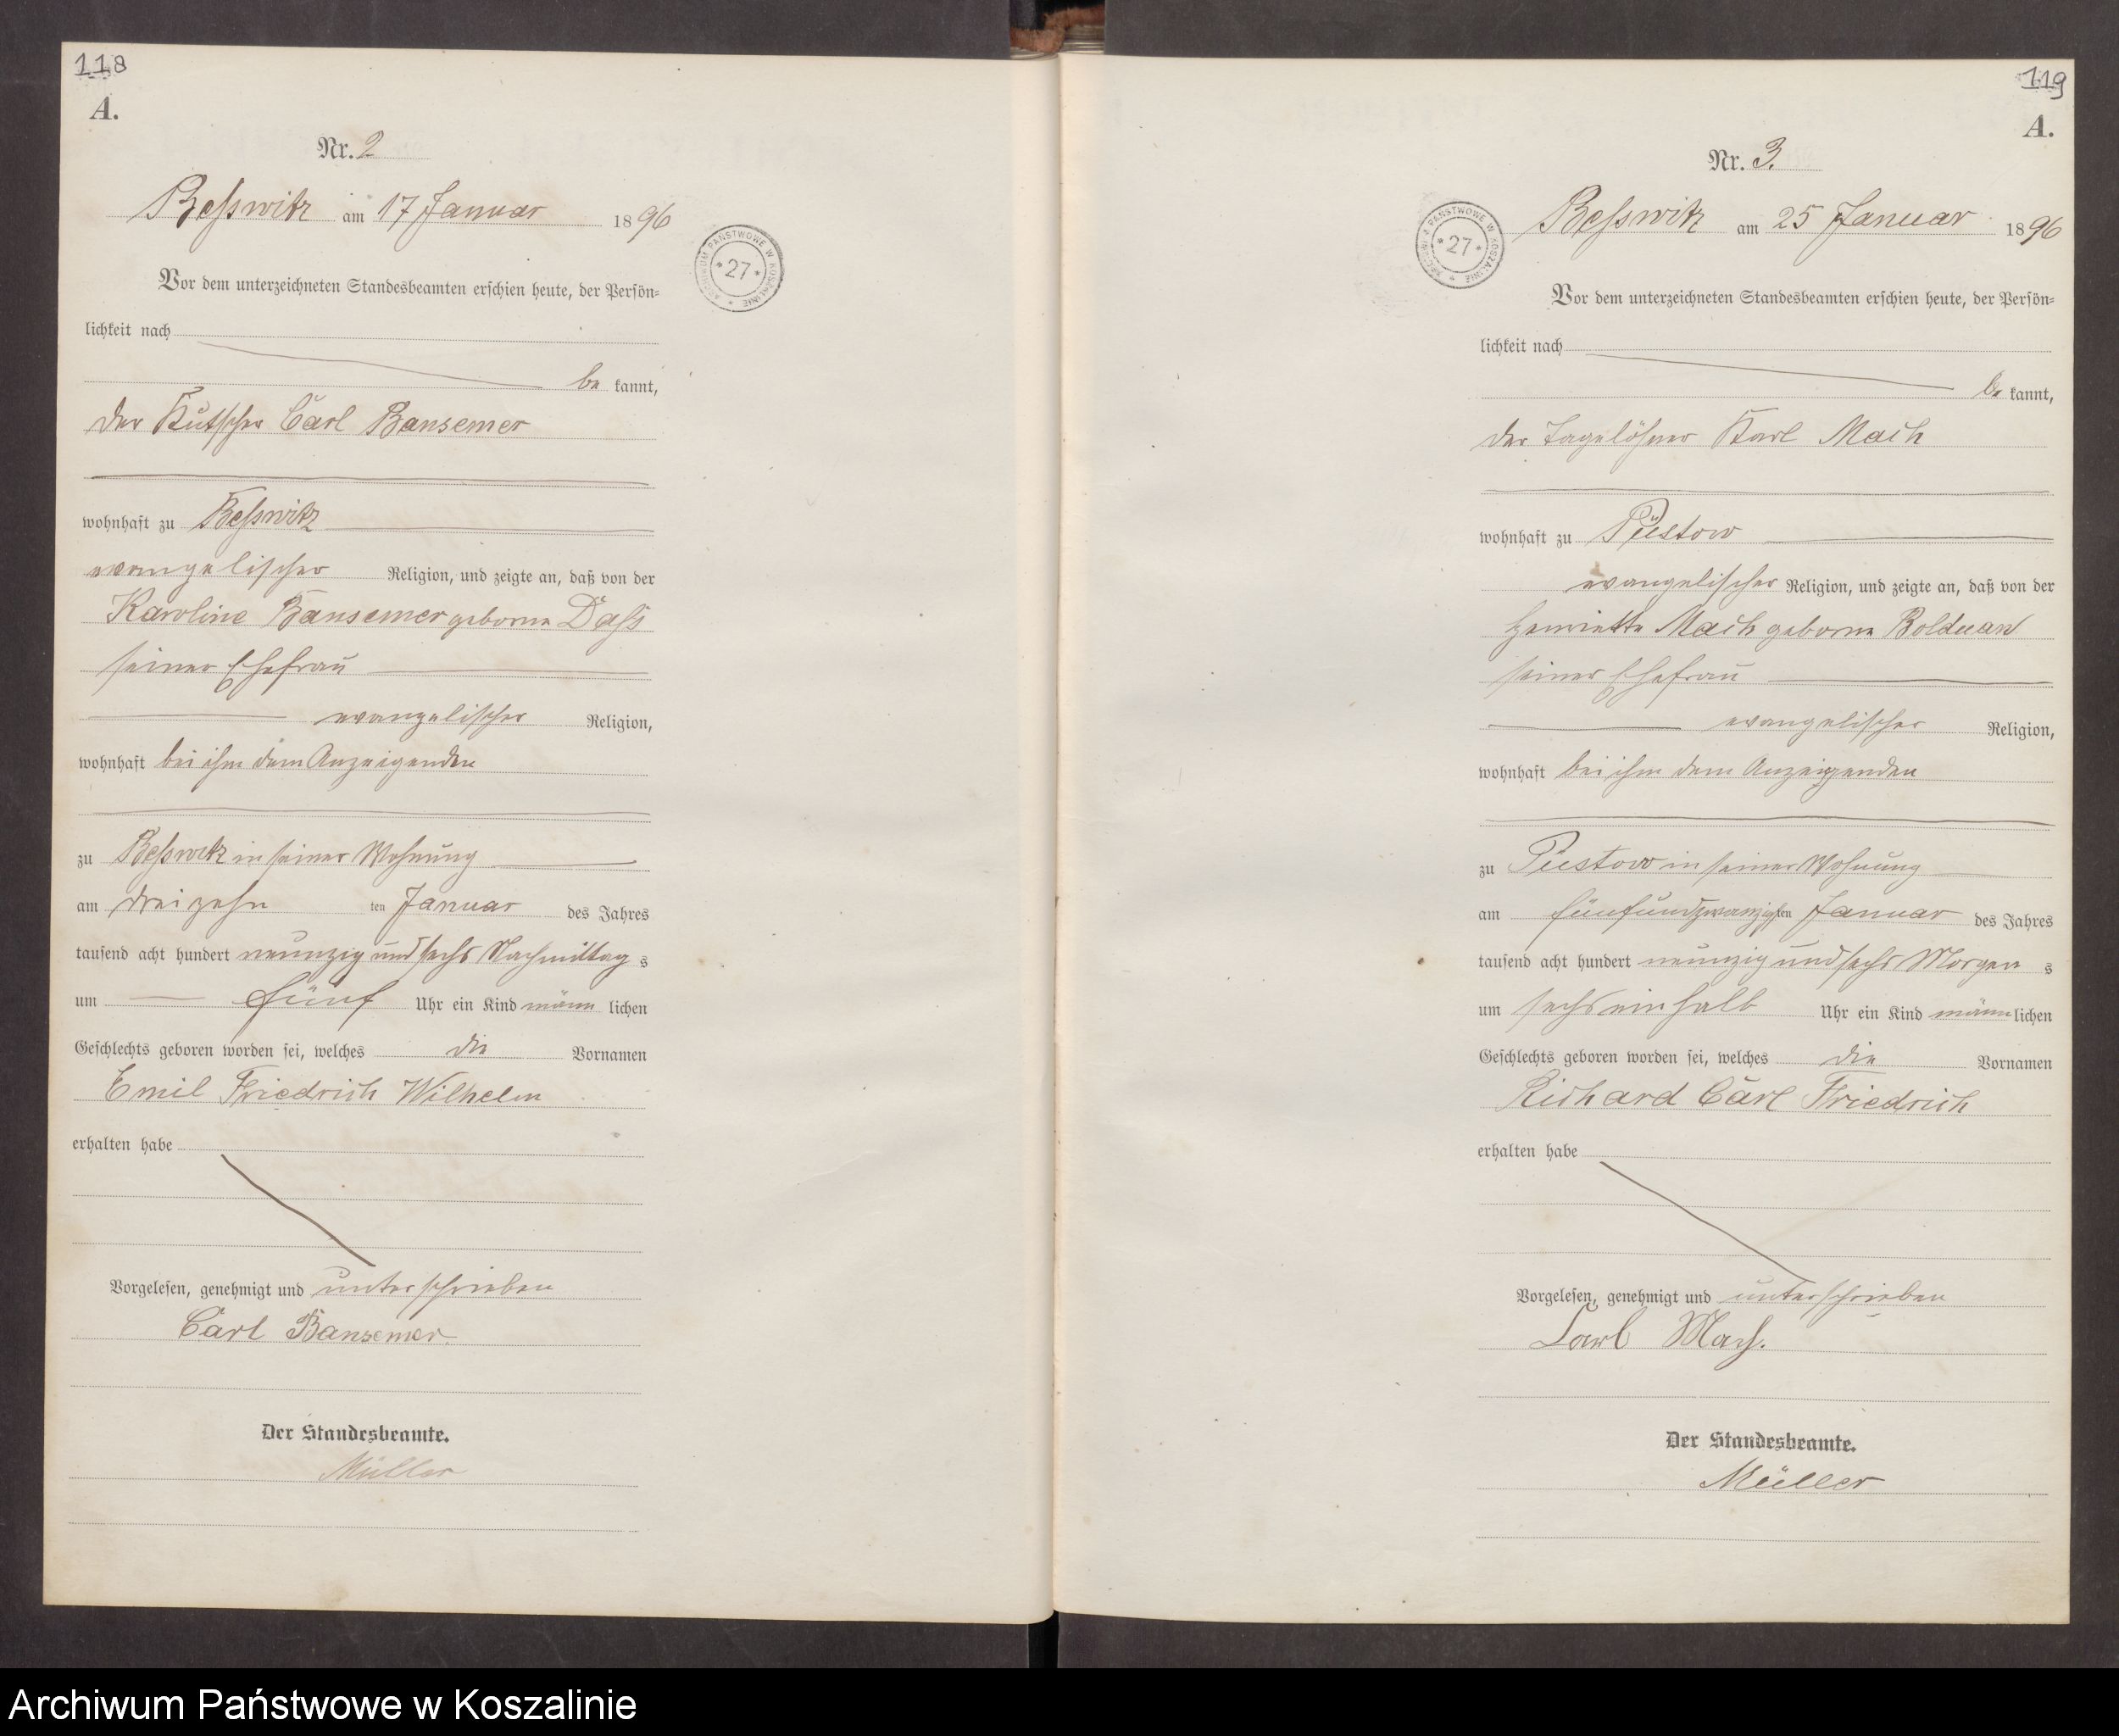 118
A.
Nr. 2
Beßwitz am 17 Januar 1896
ARCHIWUM PAŃSTWOWE W KOSZALINIE * 27 *
Vor dem unterzeichneten Standesbeamten erschien heute, der Persön-
lichkeit nach
be kannt,
der Kutscher Carl Bansemer
wohnhaft zu Beßwitz
evangelischer Religion, und zeigte an, daß von der
Karoline Bansemer geborne Daß
seiner Ehefrau
evangelischer Religion,
wohnhaft bei ihm dem Anzeigenden
zu Beßwitz in seiner Wohnung
am dreizehn ten Januar des Jahres
tausend acht hundert neunzig und sechs Nachmittag s
um fünf Uhr ein Kind männ lichen
Geschlechts geboren worden sei, welches die Vornamen
Emil Friedrich Wilhelm
erhalten habe
Vorgelesen, genehmigt und unterschrieben
Carl Bansemer.
Der Standesbeamte.
Müller
119
A.
Nr. 3.
Beßwitz am 25 Januar 1896
ARCHIWUM PAŃSTWOWE W KOSZALINIE * 27 *
Vor dem unterzeichneten Standesbeamten erschien heute, der Persön-
lichkeit nach
be kannt,
der Tagelöhner Karl Mach
wohnhaft zu Püstow
evangelischer Religion, und zeigte an, daß von der
Henriette Mach geborne Bolduan
seiner Ehefrau
evangelischer Religion,
wohnhaft bei ihm dem Anzeigenden
zu Püstow in seiner Wohnung
am fünfundzwanzigsten Januar des Jahres
tausend acht hundert neunzig und sechs Morgen s
um sechs ein halb Uhr ein Kind männ lichen
Geschlechts geboren worden sei, welches die Vornamen
Richard Carl Friedrich
erhalten habe
Vorgelesen, genehmigt und unterschrieben
Carl Mach.
Der Standesbeamte.
Müller
Archiwum Państwowe w Koszalinie